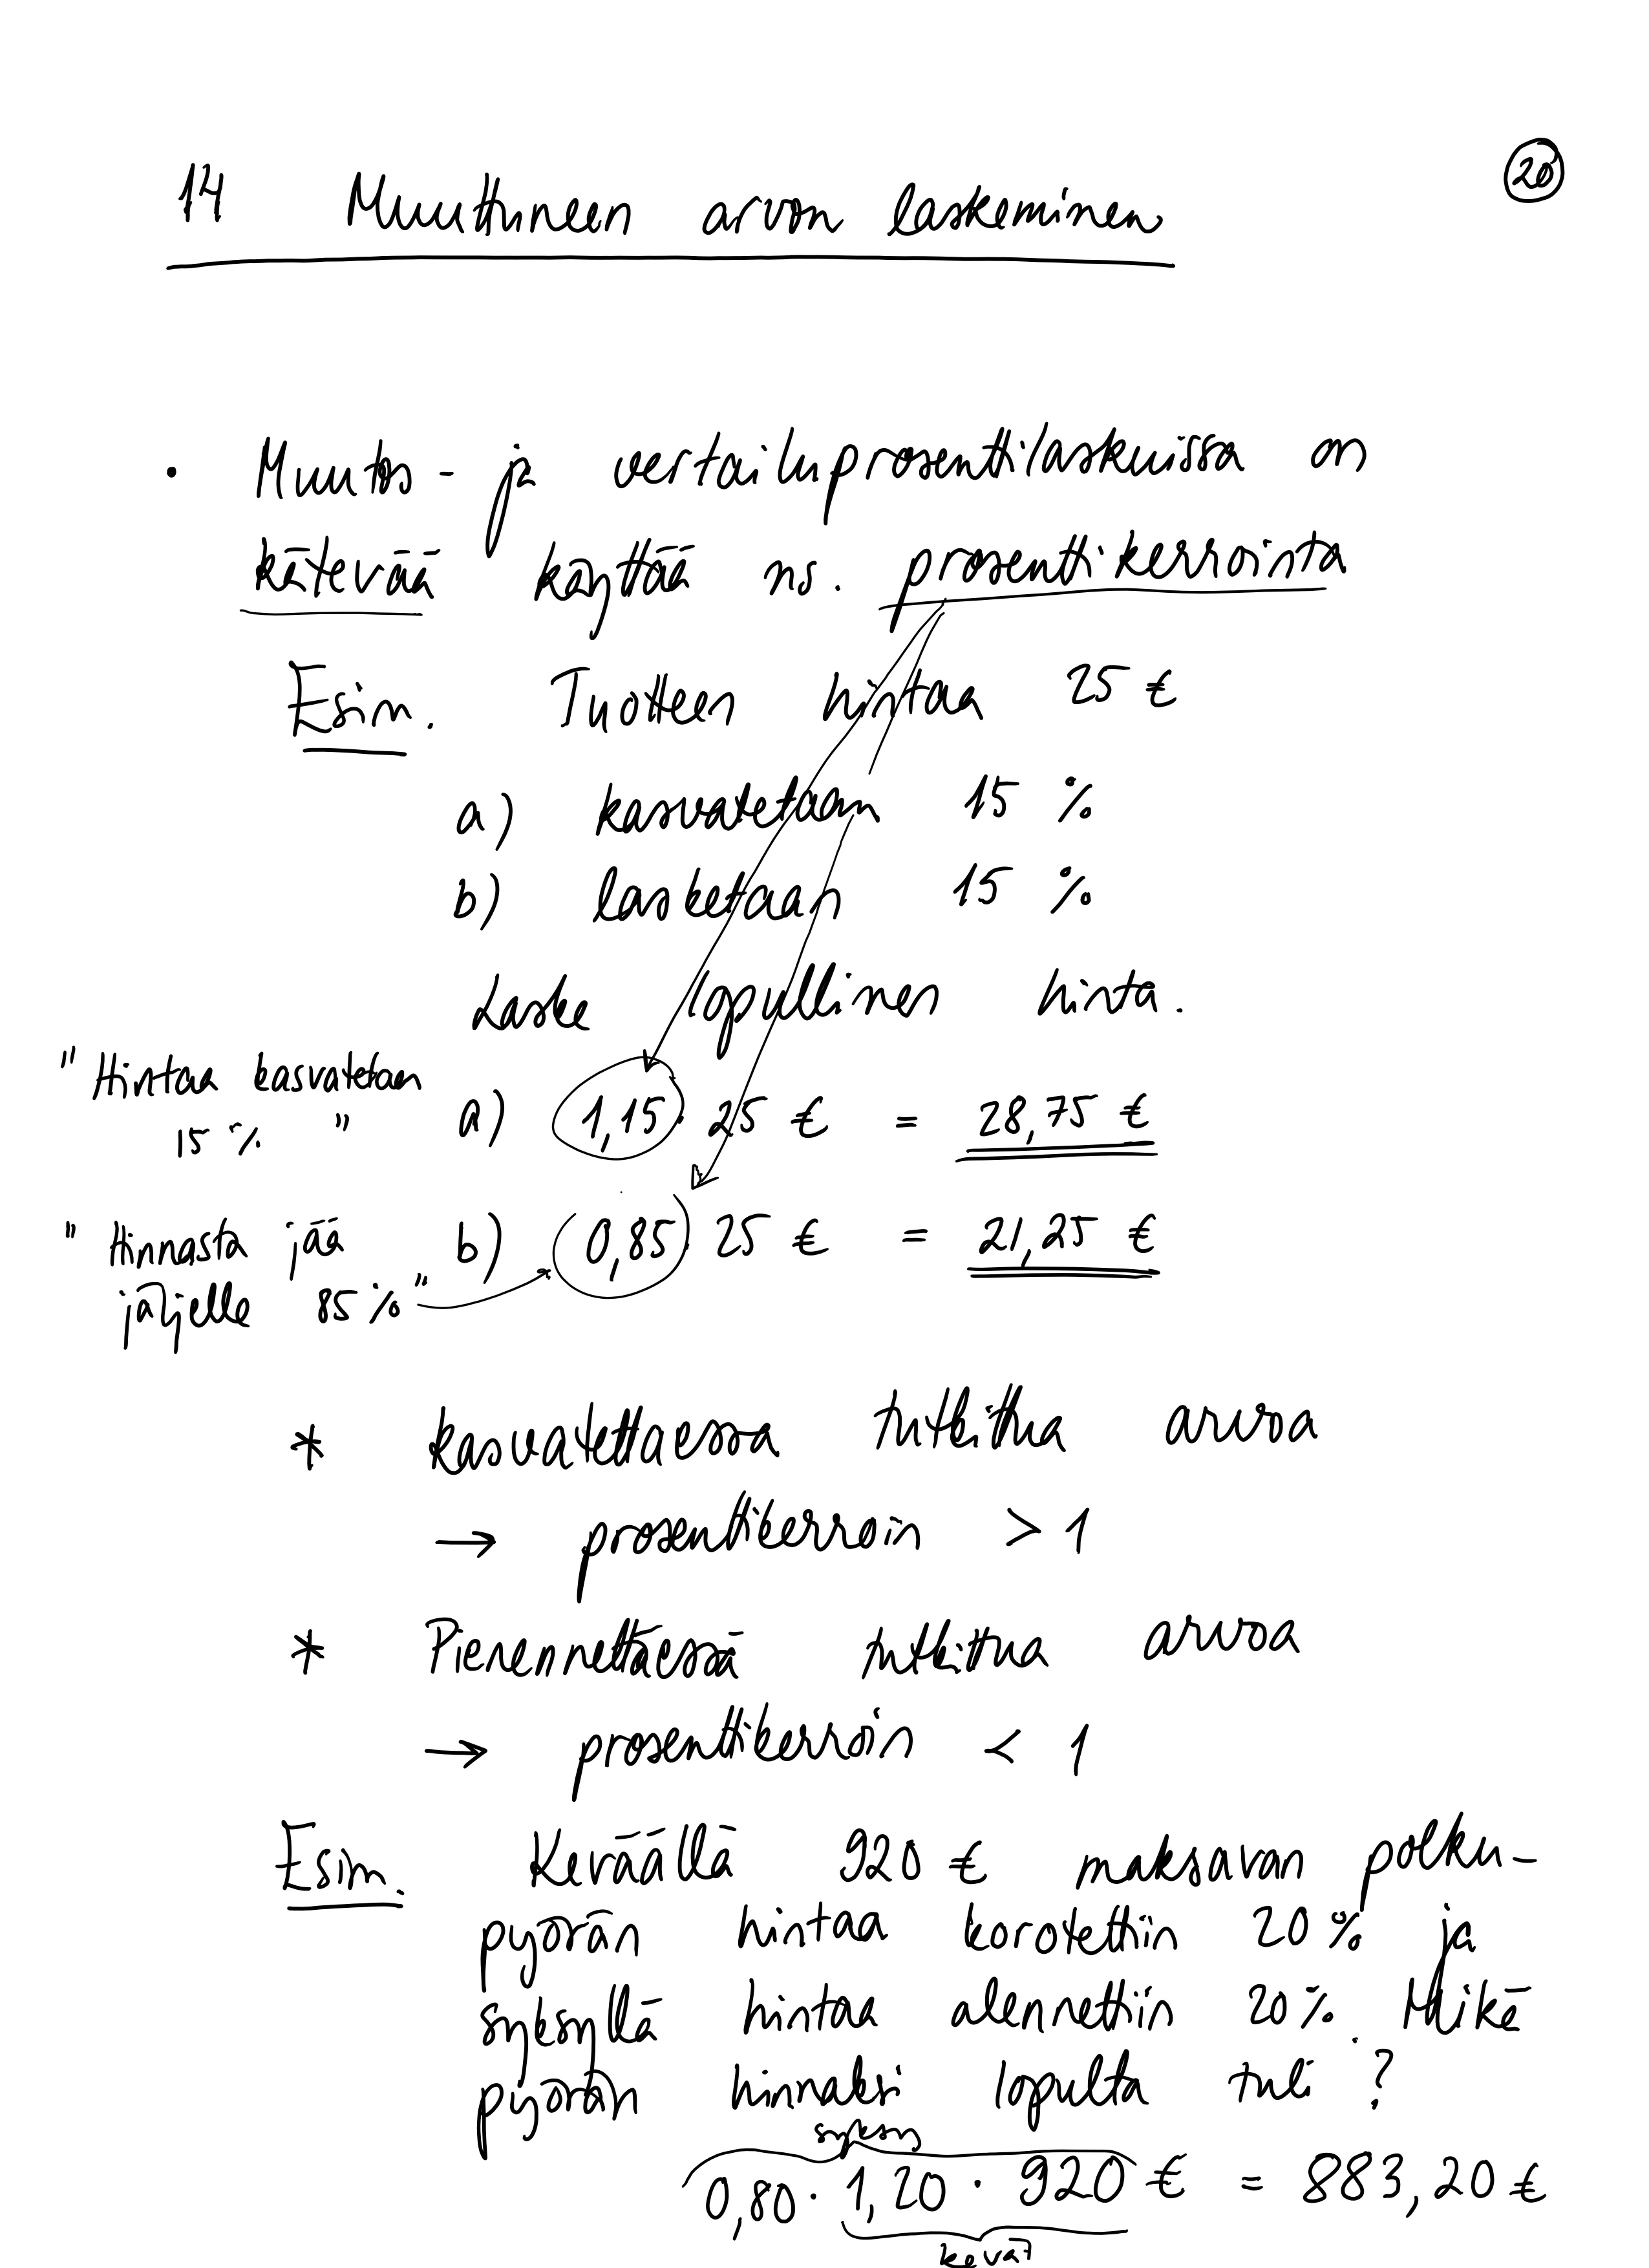 14 Muuttuneen arvon laskeminen
20
• Muutos- ja vertailuprosenttilaskuissa on
kätevää käyttää ns. prosenttikerrointa
Esim. Tuotteen hintaa 25 €
a) kasvatetaan 15 %
b) lasketaan 15 %
Laske lopullinen hinta.
"Hintaa kasvatetaan
15 %"
a) 1,15 · 25 € = 28,75 €
"Hinnasta jää
järjelle 85 %"
b) 0,85 25 € = 21,25 €
* kasvatettaessa tutkittua arvoa
→ prosenttikerroin > 1
* Pienennettäessä tutkittua arvoa
→ prosenttikerroin < 1
Esim. Keväällä 920 € maksavan polku-
pyörän hintaa korotettiin 20 % ja
syksyllä hintaa alennettiin 20 %. Mikä
pyörän hinnaksi lopulta tuli ?
syksy
0,80 · 1,20 · 920 € = 883,20 €
kevät